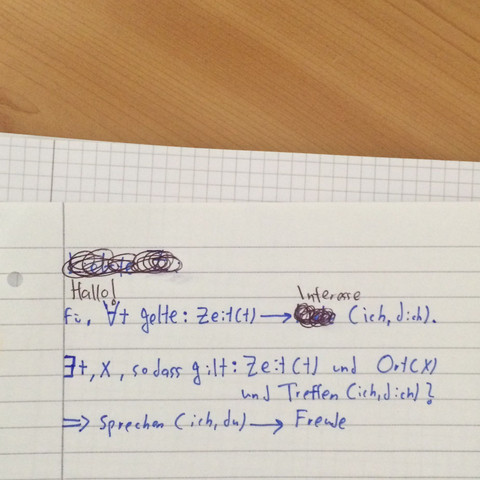 Hallo!
Für ∀t gelte: Zeit(t) → Interesse (ich, dich).
∃t, x, sodass gilt: Zeit(t) und Ort(x)
und Treffen (ich, dich)?
⇒ Sprechen (ich, du) → Freude